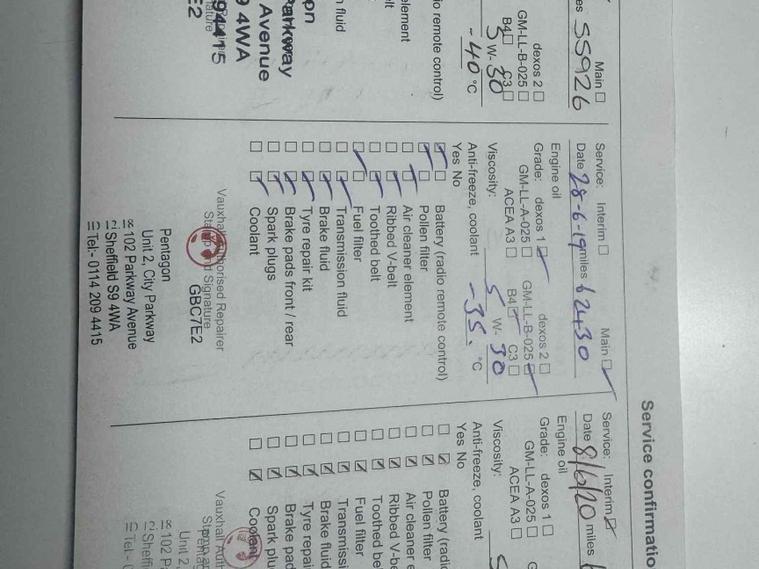 Service confirmatio
Main
es 55926
dexos 2
GM-LL-B-025
B4 C3
5 W-30
-40 °C
io remote control)
element
elt
n fluid
pn
arkway
Avenue
9 4WA
94415
E2
Service: Interim Main
Date 28-6-19 miles 62430
Engine oil
Grade: dexos 1 dexos 2
GM-LL-A-025 GM-LL-B-025
ACEA A3 B4 C3
Viscosity: 5 W-30
Anti-freeze, coolant -35. °C
Yes No
Battery (radio remote control)
Pollen filter
Air cleaner element
Ribbed V-belt
Toothed belt
Fuel filter
Transmission fluid
Brake fluid
Tyre repair kit
Brake pads front / rear
Spark plugs
Coolant
Vauxhall Authorised Repairer
Stamp and Signature
GBC7E2
Pentagon
Unit 2, City Parkway
102 Parkway Avenue
Sheffield S9 4WA
Tel:- 0114 209 4415
Service: Interim
Date 8/6/20 miles
Engine oil
Grade: dexos 1
GM-LL-A-025 G
ACEA A3
Viscosity: 5
Anti-freeze, coolant
Yes No
Battery (radio
Pollen filter
Air cleaner e
Ribbed V-be
Toothed be
Fuel filter
Transmissi
Brake fluid
Tyre repai
Brake pad
Spark plu
Coolant
Vauxhall Aut
Penta
Unit 2,
102 P
Sheffi
Tel:-